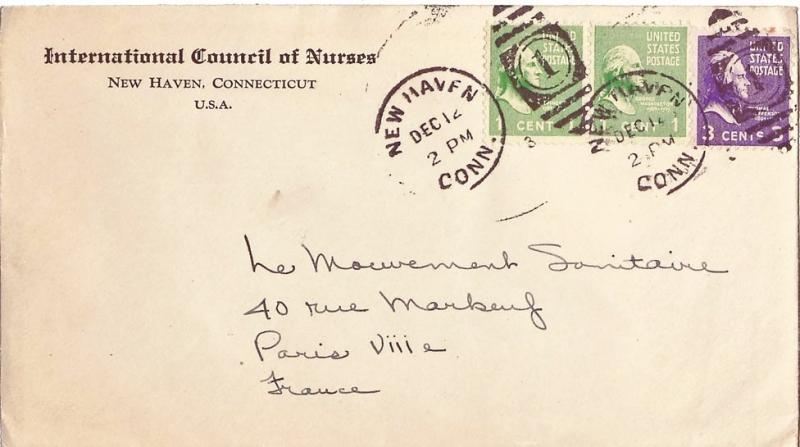 International Council of Nurses
NEW HAVEN, CONNECTICUT
U.S.A.
NEW HAVEN
DEC 12
2 PM
CONN.
1
1 CENT
UNITED
STATES
POSTAGE
CENT 1
NEW HAVEN
DEC 12
2 PM
CONN.
UNITED
STATES
POSTAGE
3 CENTS 3
Le Mouvement Sanitaire
40 rue Marbeuf
Paris VIII e
France